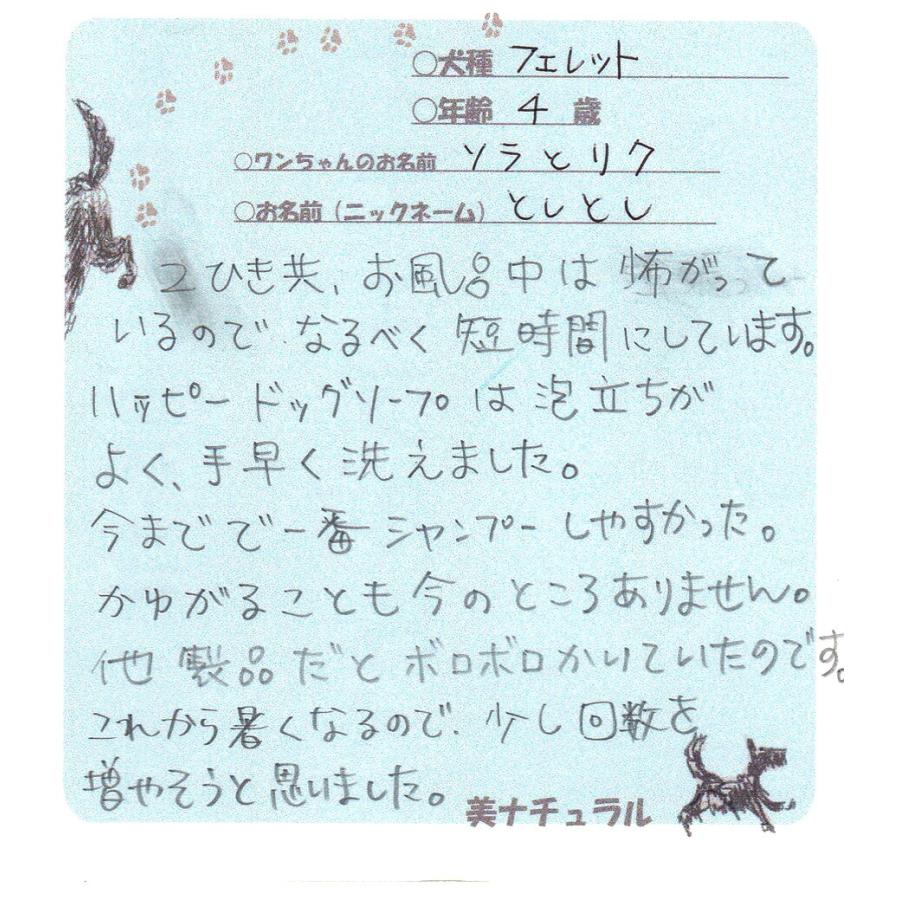 ○犬種 フェレット
○年齢 4 歳
○ワンちゃんのお名前 ソラとリク
○お名前（ニックネーム） としとし
2ひき共、お風呂中は怖がって
いるので なるべく 短時間にしています。
ハッピー ドッグソープは泡立ちが
よく、手早く洗えました。
今までで一番シャンプーしやすかった。
かゆがることも今のところありません。
他製品だとボロボロかいていたのです。
これから暑くなるので、少し回数を
増やそうと思いました。
美ナチュラル